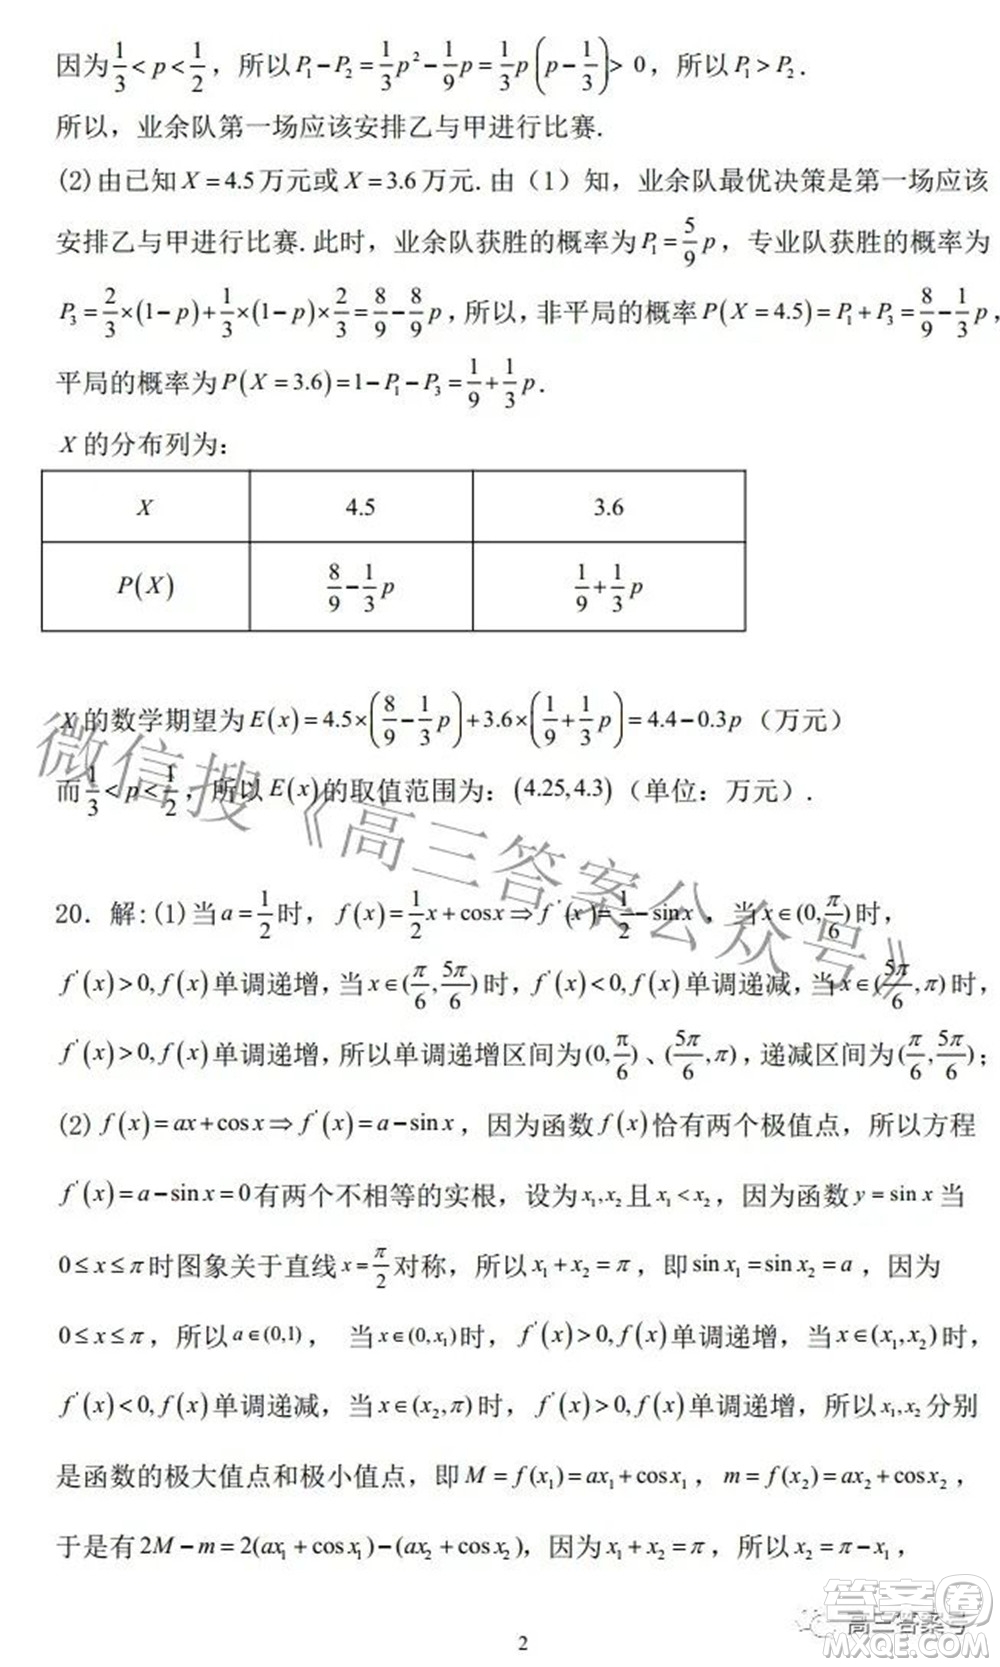 因为 1/3 < p < 1/2，所以 P₁ − P₂ = 1/3 p² − 1/9 p = 1/3 p(p − 1/3) > 0，所以 P₁ > P₂．
所以，业余队第一场应该安排乙与甲进行比赛．
(2)由已知 X = 4.5 万元或 X = 3.6 万元．由（1）知，业余队最优决策是第一场应该
安排乙与甲进行比赛．此时，业余队获胜的概率为 P₁ = 5/9 p，专业队获胜的概率为
P₃ = 2/3 × (1 − p) + 1/3 × (1 − p) × 2/3 = 8/9 − 8/9 p，所以，非平局的概率 P(X = 4.5) = P₁ + P₃ = 8/9 − 1/3 p，
平局的概率为 P(X = 3.6) = 1 − P₁ − P₃ = 1/9 + 1/3 p．
X 的分布列为：
X 4.5 3.6
P(X) 8/9 − 1/3 p 1/9 + 1/3 p
X 的数学期望为 E(x) = 4.5 × (8/9 − 1/3 p) + 3.6 × (1/9 + 1/3 p) = 4.4 − 0.3p（万元）
而 1/3 < p < 1/2，所以 E(x) 的取值范围为：(4.25, 4.3)（单位：万元）．
微信搜《高三答案公众号》
20．解：(1)当 a = 1/2 时，f(x) = 1/2 x + cos x ⇒ f'(x) = 1/2 − sin x，当 x ∈ (0, π/6) 时，
f'(x) > 0, f(x) 单调递增，当 x ∈ (π/6, 5π/6) 时，f'(x) < 0, f(x) 单调递减，当 x ∈ (5π/6, π) 时，
f'(x) > 0, f(x) 单调递增，所以单调递增区间为 (0, π/6)、(5π/6, π)，递减区间为 (π/6, 5π/6)；
(2) f(x) = ax + cos x ⇒ f'(x) = a − sin x，因为函数 f(x) 恰有两个极值点，所以方程
f'(x) = a − sin x = 0 有两个不相等的实根，设为 x₁, x₂ 且 x₁ < x₂，因为函数 y = sin x 当
0 ≤ x ≤ π 时图象关于直线 x = π/2 对称，所以 x₁ + x₂ = π，即 sin x₁ = sin x₂ = a，因为
0 ≤ x ≤ π，所以 a ∈ (0,1)， 当 x ∈ (0, x₁) 时，f'(x) > 0, f(x) 单调递增，当 x ∈ (x₁, x₂) 时，
f'(x) < 0, f(x) 单调递减，当 x ∈ (x₂, π) 时，f'(x) > 0, f(x) 单调递增，所以 x₁, x₂ 分别
是函数的极大值点和极小值点，即 M = f(x₁) = ax₁ + cos x₁，m = f(x₂) = ax₂ + cos x₂，
于是有 2M − m = 2(ax₁ + cos x₁) − (ax₂ + cos x₂)，因为 x₁ + x₂ = π，所以 x₂ = π − x₁，
答案圈
高三答案号
MXQE.COM
2